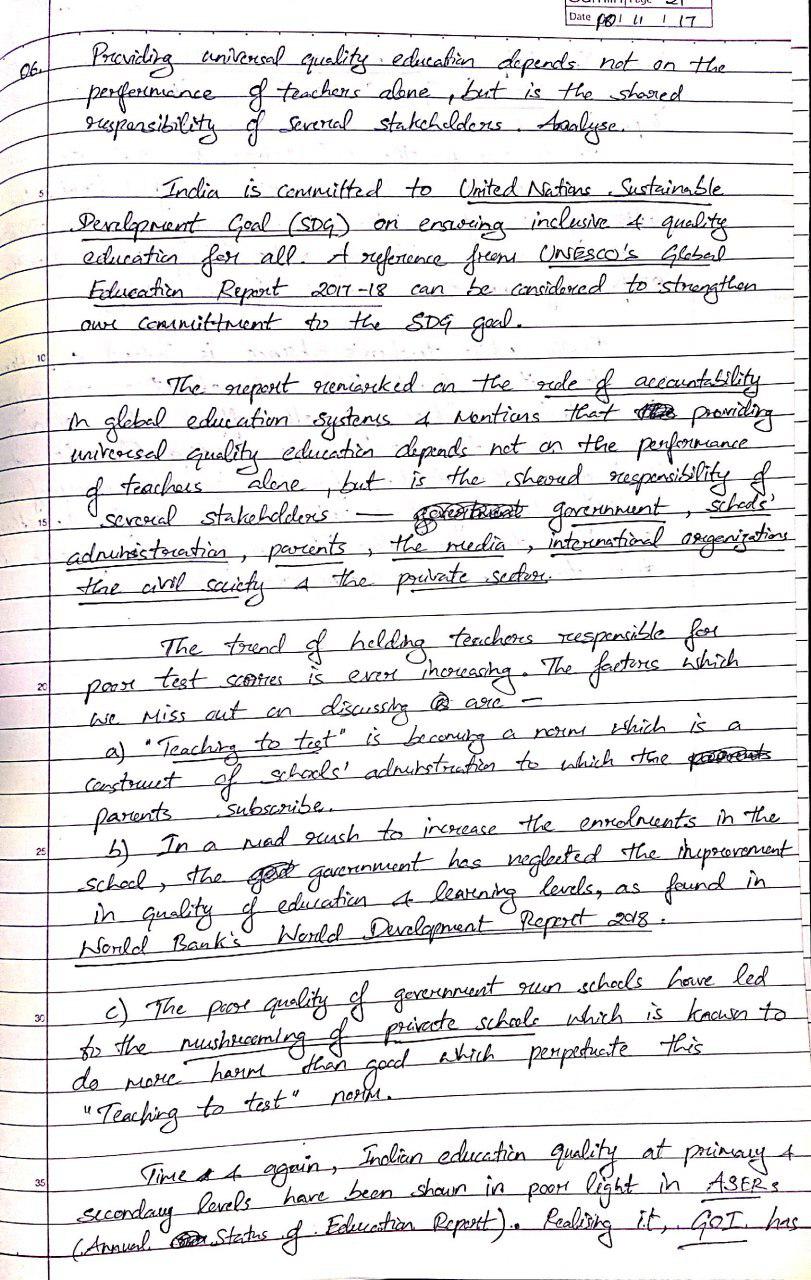 Page 21
Date 08/11/17
06. Providing universal quality education depends not on the
performance of teachers alone, but is the shared
responsibility of several stakeholders. Analyse.
5
India is committed to United Nations Sustainable
Development Goal (SDG) on ensuring inclusive & quality
education for all. A reference from UNESCO's Global
Education Report 2017-18 can be considered to strengthen
our committment to the SDG goal.
10
The report remarked on the role of accountability
in global education systems & mentions that providing
universal quality education depends not on the performance
of teachers alone, but is the shared responsibility of
15 several stakeholders — government, schools'
administration, parents, the media, international organizations
the civil society & the private sector.
The trend of holding teachers responsible for
20 poor test scores is ever increasing. The factors which
we miss out on discussing are —
a) "Teaching to test" is becoming a norm which is a
construct of schools' adminstration to which the
parents subscribe.
25 b) In a mad rush to increase the enrolments in the
school, the government has neglected the improvement
in quality of education & learning levels, as found in
World Bank's World Development Report 2018.
30 c) The poor quality of government run schools have led
to the mushrooming of private schools which is known to
do more harm than good which perpetuate this
"Teaching to test" norm.
35 Time & again, Indian education quality at primary &
secondary levels have been shown in poor light in ASERs
(Annual Status of Education Report). Realising it, GOI has